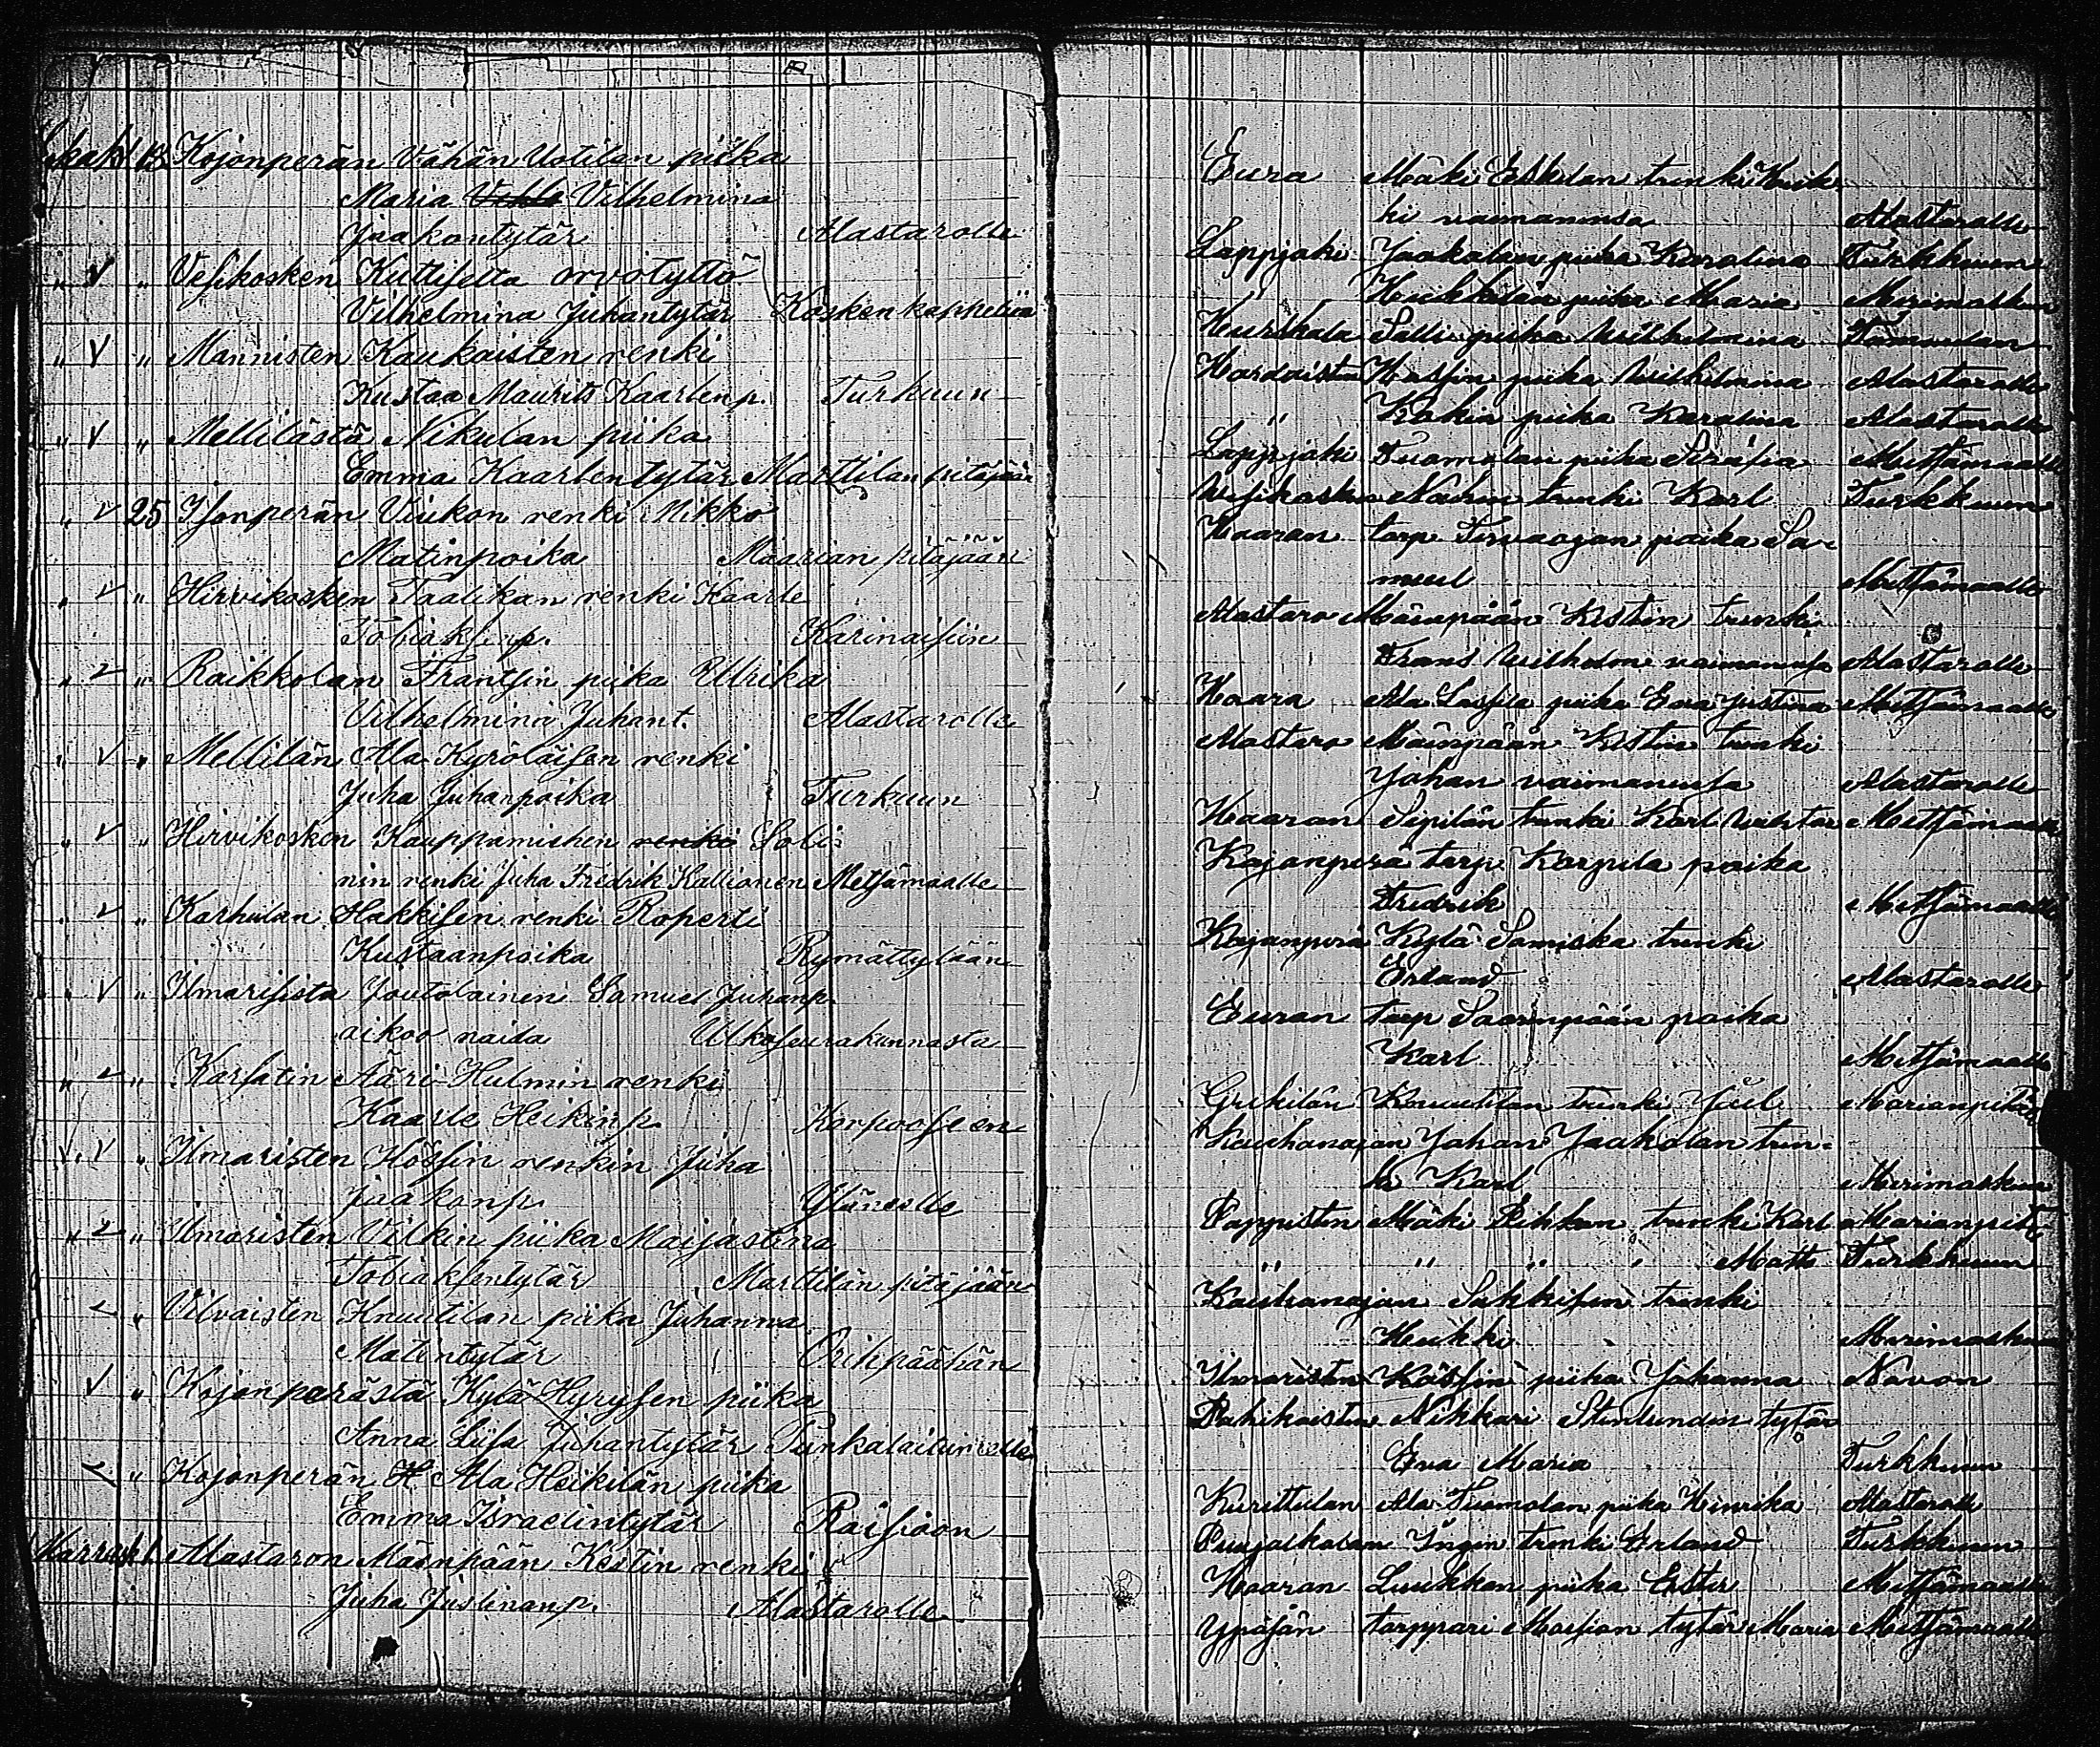 Lokak 13 Kojonperän Vähän Uotilan piika
Maria Vilhelmina
Jaakontytär Alastarolle
" V " Vesikosken Kuttiselta orvotyttö
Vilhelmina Juhantytär Kosken kappeliin
" V " Männisten Kaukaisten renki
Kustaa Maurits Kaarlenp. Turkuun
" V " Mellilästä Nikulan piika
Emma Kaarlentytär Marttilan pitäjään
" V 25 Isonperän Viukon renki Mikko
Matinpoika Maarian pitäjään
" V " Hirvikosken Taalikan renki Kaarle
Tobiaksenp. Karinaisiin
" V " Raikkolan Frantsin piika Ulrika
Vilhelmina Juhant. Alastarolle
" V " Mellilän Ala Kyröläisen renki
Juha Juhanpoika Turkuun
" V " Hirvikosken Kauppamiehen renki Soli-
nin renki Juha Fredrik Kallionen Metsämaalle
" V " Karhulan Hakkisen renki Roperti
Kustaanpoika Rymättylään
" V " Ilmarisista Joutolainen Samuel Juhanp.
aikoo naida Ulkoseurakunnasta
" V " Karsatin Ääri-Hulmin renki
Kaarle Heikinp. Korpooseen
" V " Ilmaristen Hössin renkin Juha
Jaakonp. Yläneelle
" V " Ilmaristen Vilkin piika Maijastina
Tobiaksentytär Marttilan pitäjään
V " Vilvaisten Knuutilan piika Juhanna
Matintytär Oripäähän
V " Kojonperästä Kylä-Hyrysen piika
Anna Liisa Juhantytär Punkalaitumelle
V " Kojonperän H Ala Heikilän piika
Emma Israelintytär Raisioon
Marrask 1 Alastaron Männpään Kestin renki
Juha Juslinanp. Alastarolle
Eura Mäki Eskolan trenki Heik-
ki vaimonensa Alastarolle
Lappjoki Jaakolan piika Karolina Turkkuun
" Heikkilän piika Maria Merimaskun
Kurikala Salli piika Wilhelmina Tamoulan
Hardaisten Hassin piika Wilhelmina Alastarolle
" Kakia piika Karolina Alastarolle
Lappjoki Tuomolan piika Serafia Metsämaalle
Wesikosken trenki Karl Turkkuun
Haaran torp. Tervaojan poika Sa-
muel Metsämaalle
Alastaro Männpään Kestin trenki
Frans Wilhelm vaimonensa Alastarolle
Haara Ala Lassila piika Eva Justina Metsämaalle
Alastaro Männpään Kestin trenki
Johan vaimonensa Alastarolle
Haaran Sepilän trenki Karl Wihtor Metsämaalle
Kojonperä torp. Korpela poika
Fredrik Metsämaalle
Kojonperä Kylä Samiska trenki
Erland Alastarolle
Euran torp Saarenpään poika
Karl Metsämaalle
Krekilän Knuutilan trenki Joel Marianpitä
Kauhanojan Johan Jaakolan tren-
ki Karl Merimaskun
Pappisten Mäki Pihkan trenki Karl Marianpitä
" " " " Matts Turkkuun
Kauhanojan Sakkisen trenki
Heikki Merimaskun
Ilmaristen Hössin piika Johanna Navon
Pahikaisten Nikkari Stenlundin tytär
Eva Maria Turkkuun
Kurittulan Ala Tuomolan piika Henrika Alastarolle
Puujalkalan Ingin trenki Erland Turkkuun
Haaran Luukkan piika Ester Metsämaalle
Ypäjän torppari Massian tytär Maria Metsämaalle